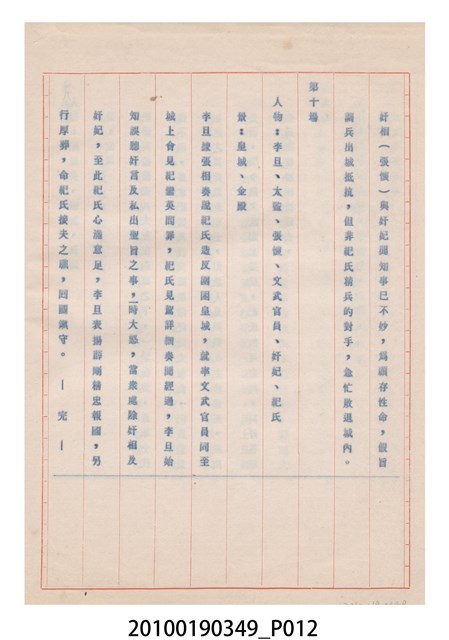 奸相(張俱)與奸妃聞知事已不妙,為顧存性命,假旨
調兵出城抵抗,但非祀氏精兵的對手,急忙敗退城內。
第十場
人物:李旦、太監、張俱、文武官員、奸妃、祀氏
景:皇城、金殿
李旦據張相奏說祀氏造反圍困皇城,就率文武官員同至
城上會見祀鸞英問罪,祀氏見駕詳細奏聞經過,李旦始
知誤聽奸言及私出聖旨之事,一時大怒,當眾處除奸相及
奸妃,至此祀氏心滿意足,李旦表揚薛剛精忠報國,另
行厚葬,命祀氏接夫之職,回關鎮守。 — 完 —
20100190349_P012